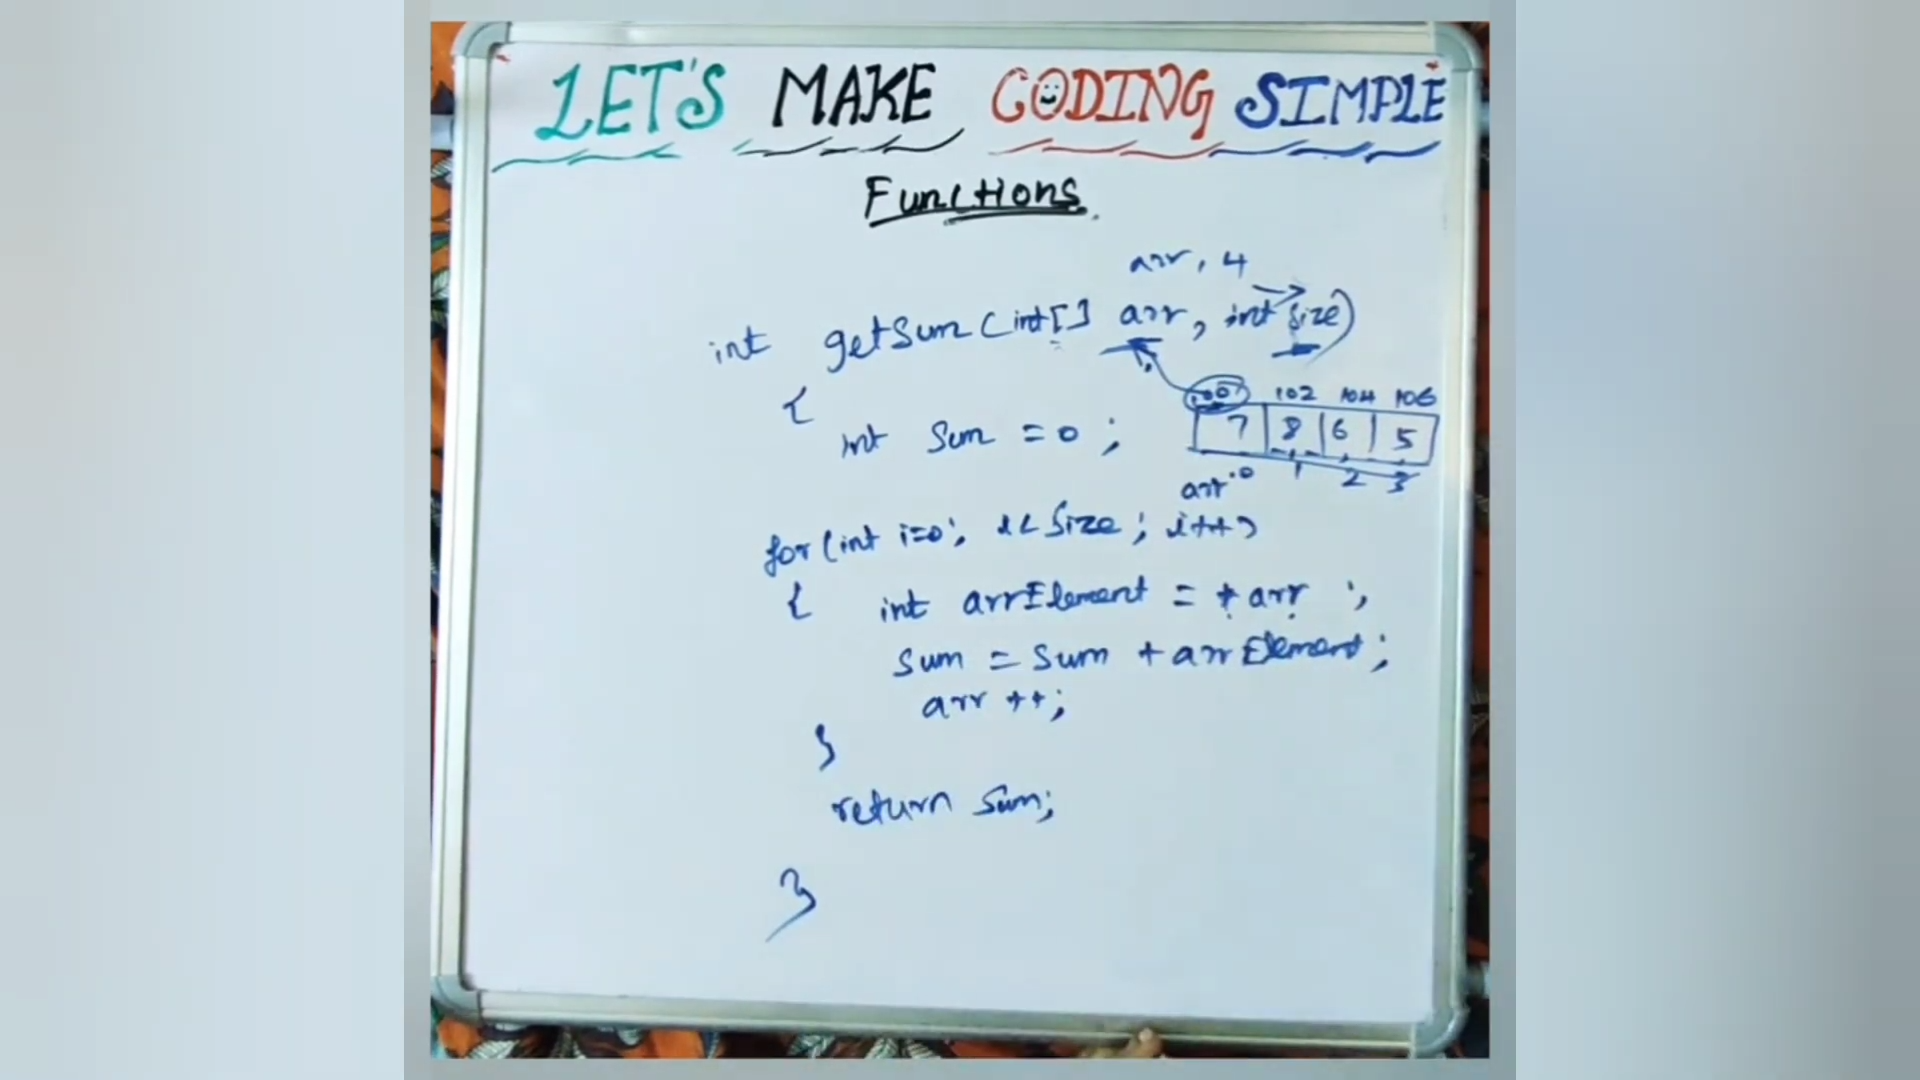 LET'S MAKE CODING SIMPLE
Functions
arr, 4
int getSum(int[] arr, int size)
{
100 102 104 106
int sum = 0;
7 8 6 5
arr 0 1 2 3
for(int i=0; i< size; i++)
{ int arrElement = *arr ;
sum = sum + arrElement;
arr ++;
}
return sum;
}